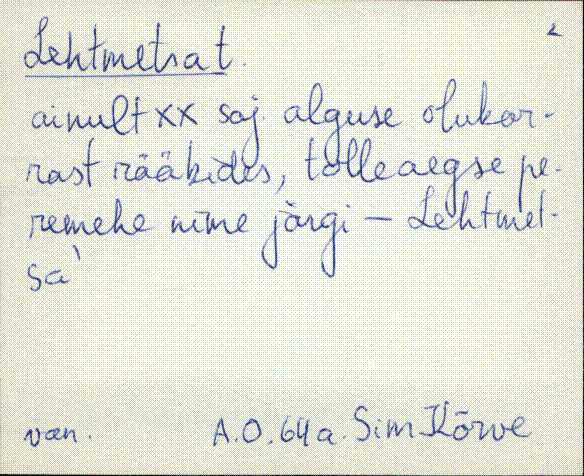 2
Lehtmetsat.
ainult XX saj alguse olukor-
rast rääkides, tolleaegse pe-
remehe nime järgi – Lehtmet-
sa`
van. A.O. 64 a. Sim Kõrve